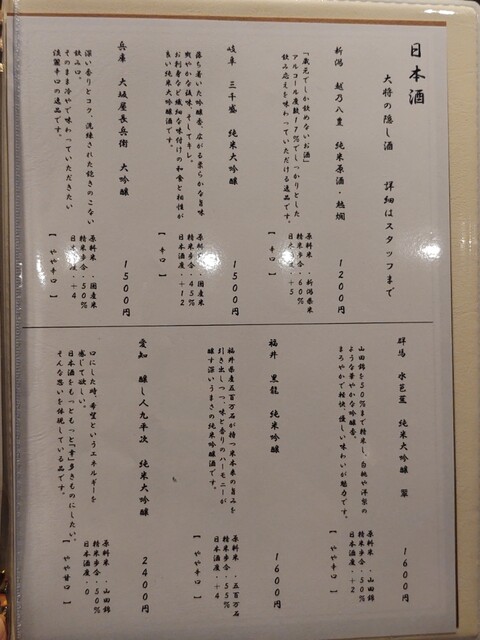 日本酒
大将の隠し酒　詳細はスタッフまで
新潟　越乃八豊　純米原酒・熱燗　1200円
「蔵元でしか飲めないお酒」
アルコール度数17%でしっかりとした
飲み応えを味わっていただける逸品です。
原料米　・新潟県米
精米歩合・60%
日本酒度・+5
【　辛口　】
岐阜　三千盛　純米大吟醸　1500円
落ち着いた吟醸香、広がる柔らかな旨味
爽やかな後味、そしてキレ。
お刺身など繊細な味付けの和食と相性が
良い純米大吟醸酒です。
原料米　・国産米
精米歩合・45%
日本酒度・+12
【　辛口　】
兵庫　大坂屋長兵衛　大吟醸　1500円
深い香りとコク、洗練された飽きのこない
飲み口。
そのまま冷やで味わっていただきたい
淡麗辛口の逸品です。
原料米　・国産米
精米歩合・50%
日本酒度・+4
【　やや辛口　】
群馬　水芭蕉　純米大吟醸　翠　1600円
山田錦を50%まで精米し、白桃や洋梨の
ような華やかな吟醸香。
まろやかで軽快、優しい味わいが魅力です。
原料米　・山田錦
精米歩合・50%
日本酒度・+2
【　やや辛口　】
福井　黒龍　純米吟醸　1600円
福井県産五百万石が持つ米本来の旨みを
引き出しつつ、味と香りのハーモニーが
醸す深いうまさの純米吟醸酒です。
原料米　・五百万石
精米歩合・55%
日本酒度・+4
【　やや辛口　】
愛知　醸し人九平次　純米大吟醸　2400円
口にした時、希望というエネルギーを
感じて欲しい。
日本酒をもっともっと「幸」多きものにしたい。
そんな思いを体現している品です。
原料米　・山田錦
精米歩合・50%
日本酒度・0
【　やや甘口　】